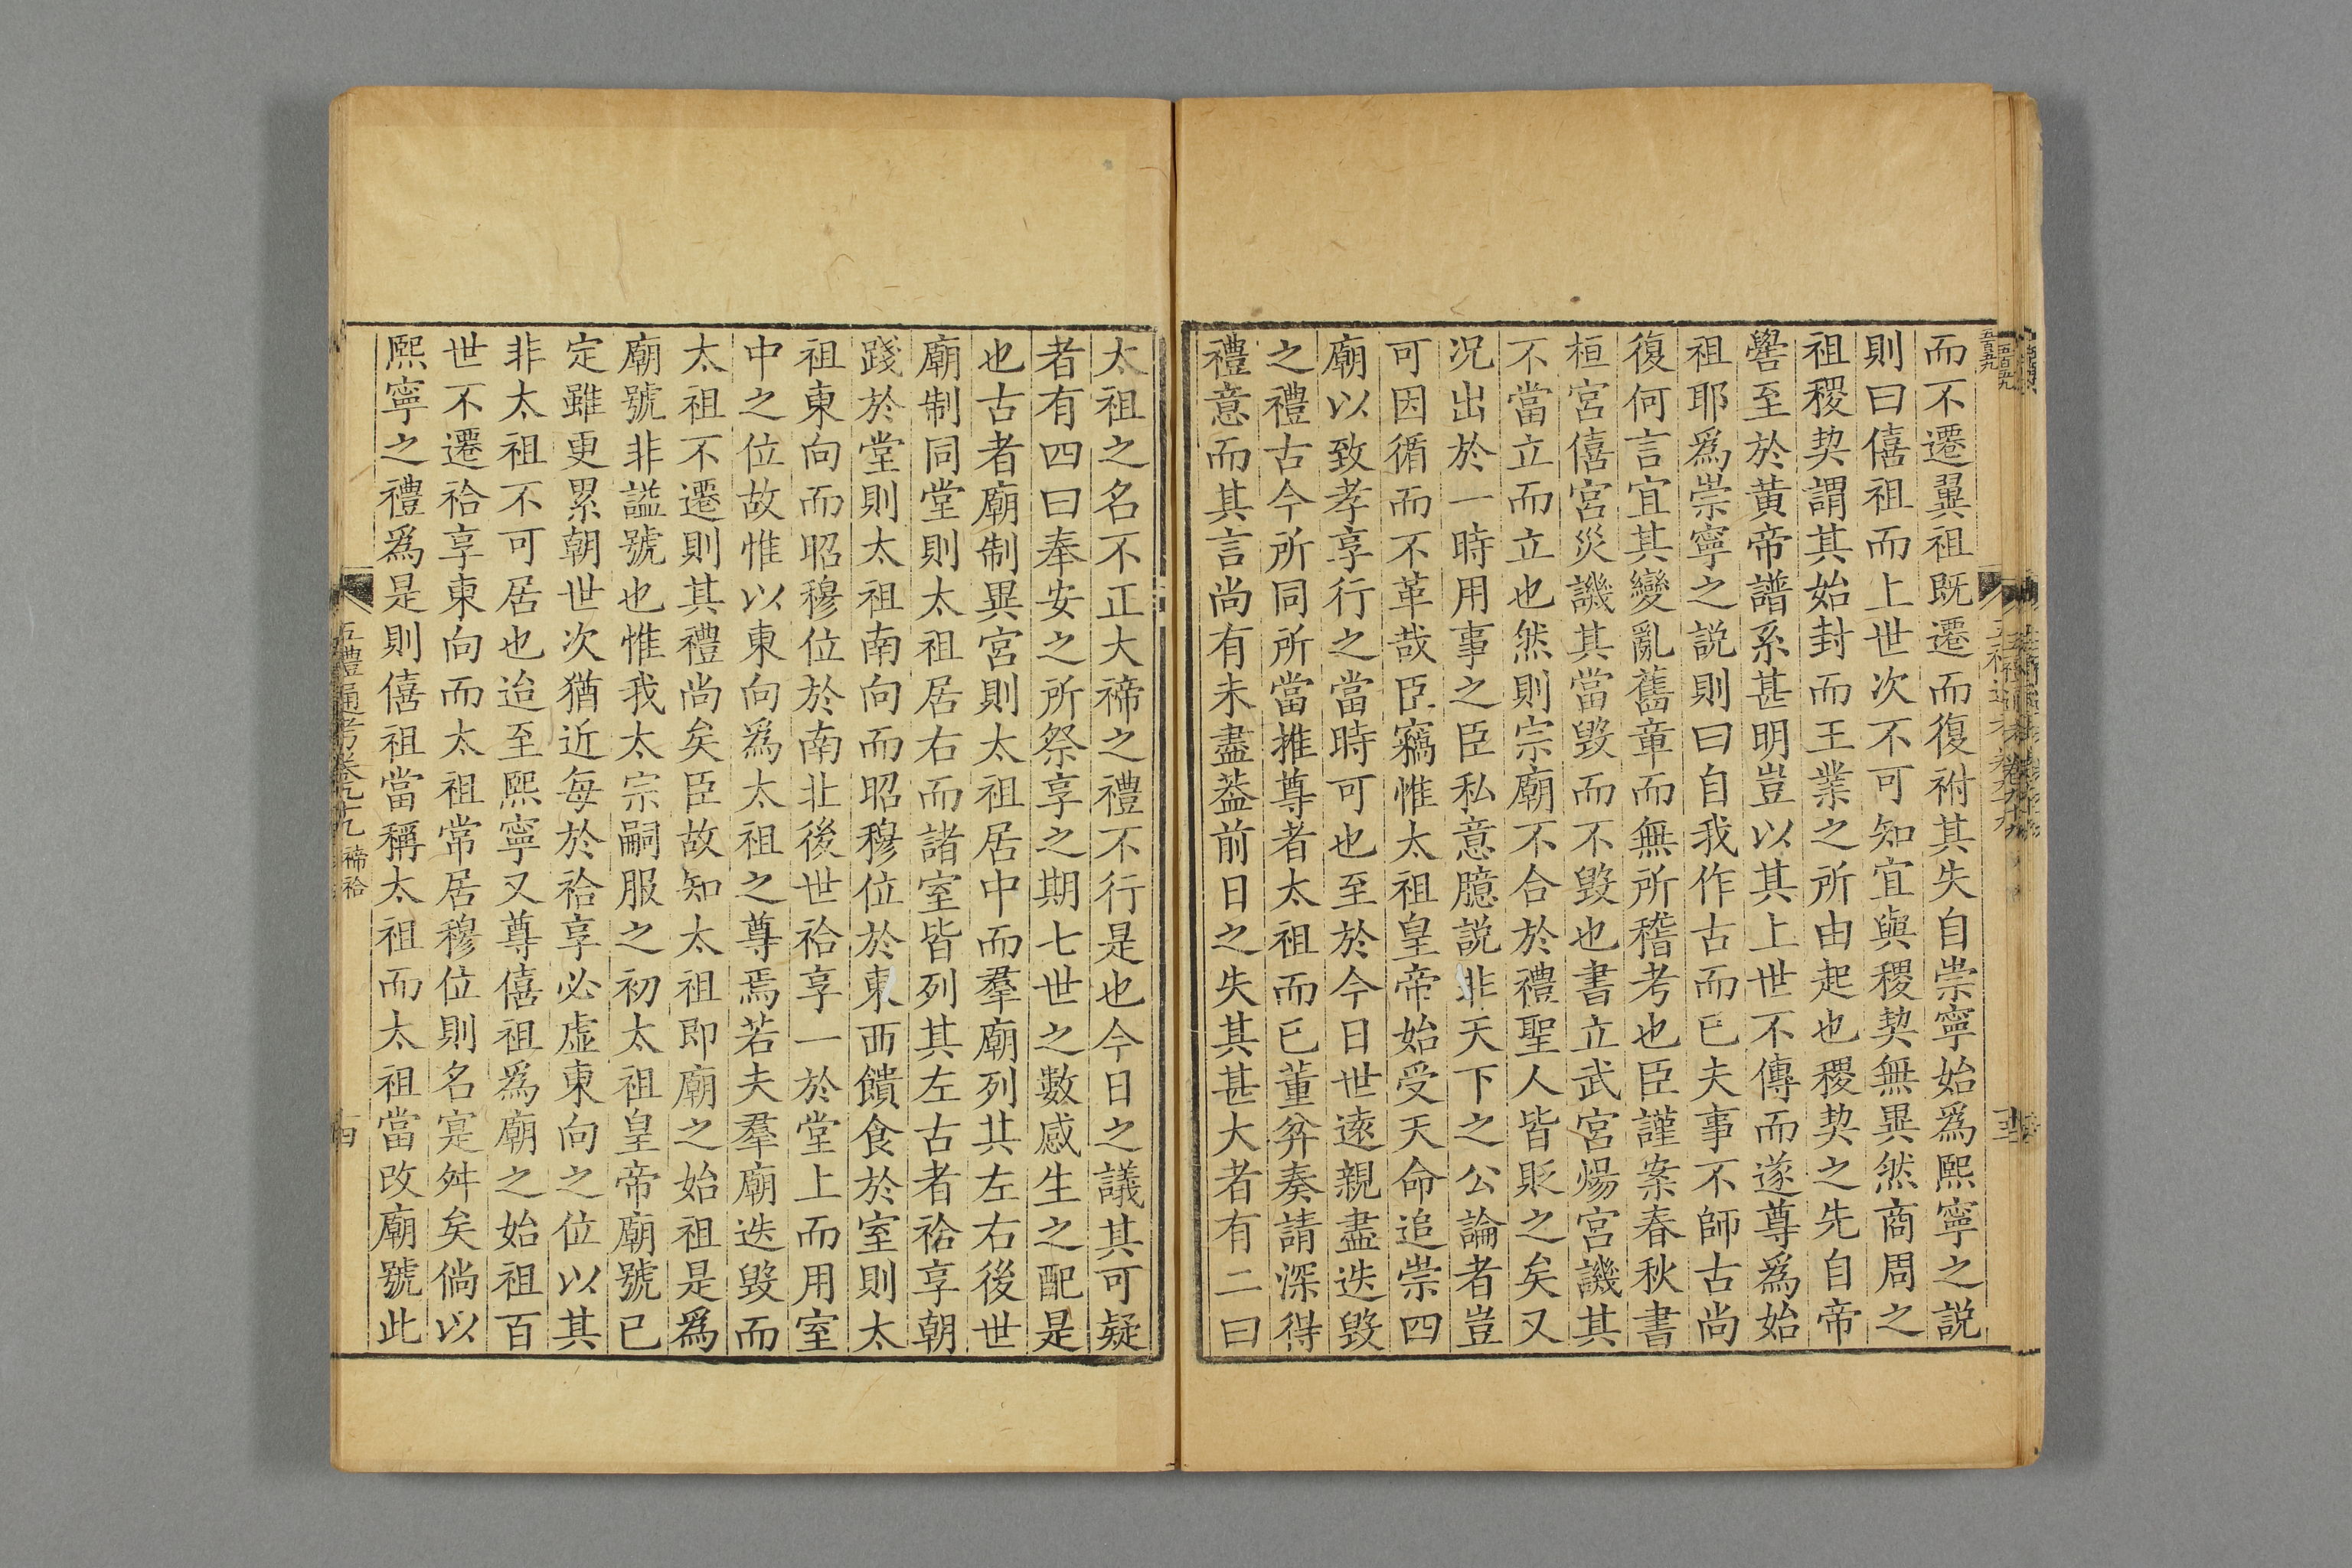 而不遷翼祖既遷而復祔其失自崇寧始爲熙寧之説
則曰僖祖而上世次不可知宜與稷契無異然商周之
祖稷契謂其始封而王業之所由起也稷契之先自帝
嚳至於黄帝譜系甚明豈以其上世不傳而遂尊爲始
祖耶爲崇寧之説則曰自我作古而已夫事不師古尚
復何言宜其變亂舊章而無所稽考也臣謹案春秋書
桓宮僖宮災譏其當毀而不毀也書立武宮煬宮譏其
不當立而立也然則宗廟不合於禮聖人皆貶之矣又
况出於一時用事之臣私意臆説非天下之公論者豈
可因循而不革哉臣竊惟太祖皇帝始受天命追崇四
廟以致孝享行之當時可也至於今日世逺親盡迭毀
之禮古今所同所當推尊者太祖而已董弅奏請深得
禮意而其言尚有未盡葢前日之失其甚大者有二曰
太祖之名不正大禘之禮不行是也今日之議其可疑
者有四曰奉安之所祭享之期七世之數感生之配是
也古者廟制異宮則太祖居中而羣廟列其左右後世
廟制同堂則太祖居右而諸室皆列其左古者祫享朝
踐於堂則太祖南向而昭穆位於東西饋食於室則太
祖東向而昭穆位於南北後世祫享一於堂上而用室
中之位故惟以東向爲太祖之尊焉若夫羣廟迭毀而
太祖不遷則其禮尚矣臣故知太祖即廟之始祖是爲
廟號非謚號也惟我太宗嗣服之初太祖皇帝廟號已
定雖更累朝世次猶近每於祫享必虚東向之位以其
非太祖不可居也迨至熙寧又尊僖祖爲廟之始祖百
世不遷祫享東向而太祖常居穆位則名寔舛矣倘以
熙寧之禮爲是則僖祖當稱太祖而太祖當改廟號此
五禮通考卷九十九 禘祫